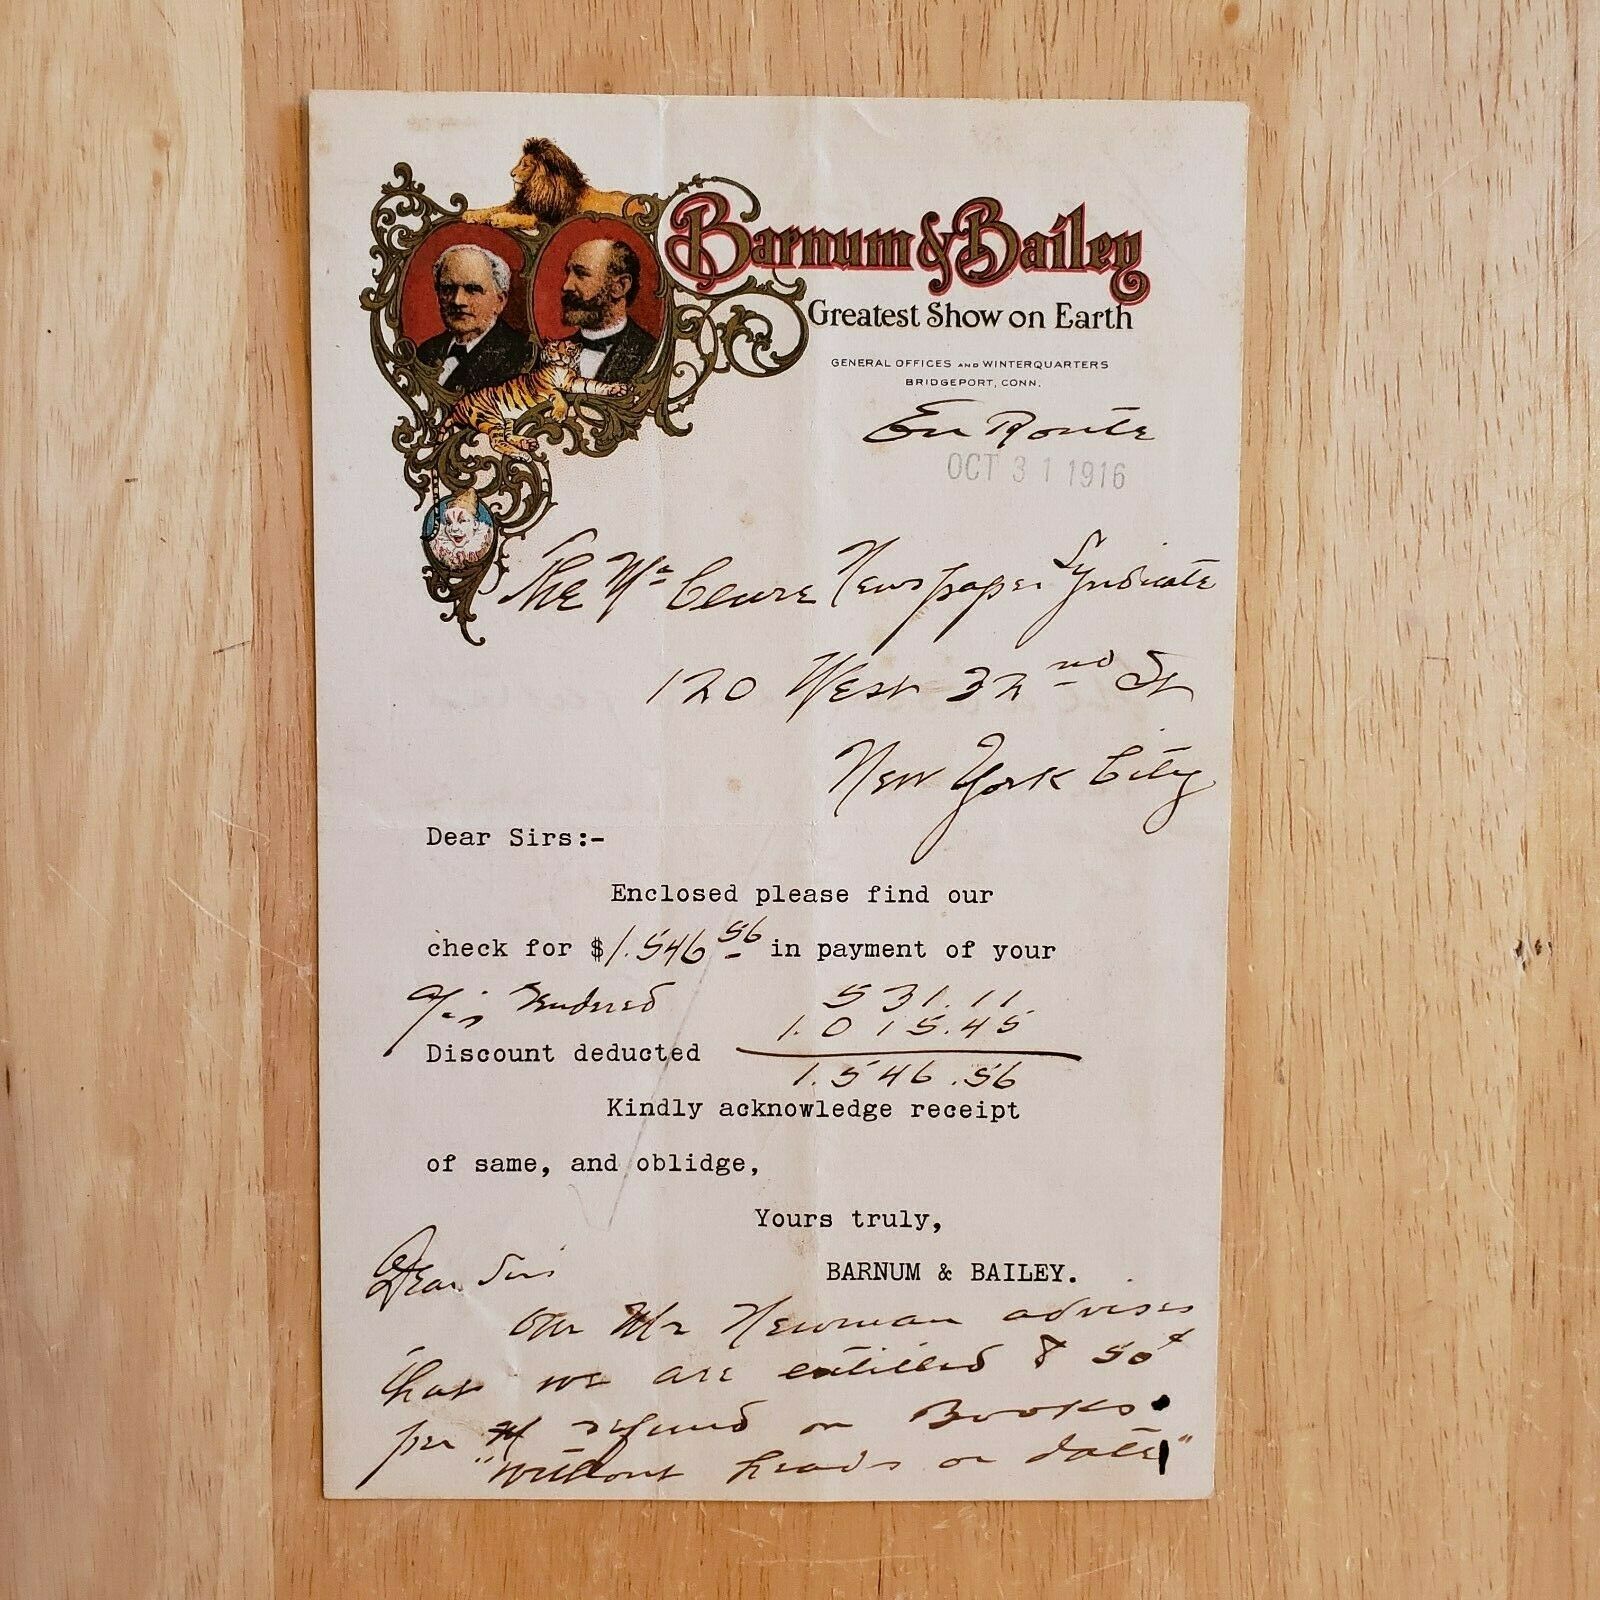 Barnum & Bailey
Greatest Show on Earth
GENERAL OFFICES AND WINTERQUARTERS
BRIDGEPORT, CONN.
En Route
OCT 31 1916
The Mc Clure Newspaper Syndicate
120 West 32nd St
New York City
Dear Sirs:-
Enclosed please find our
check for $1.546 56 in payment of your
a/cs Rendered 531.11
1.015.45
Discount deducted
1.546.56
Kindly acknowledge receipt
of same, and oblidge,
Yours truly,
BARNUM & BAILEY.
Dear Sirs
Our Mr Newman advises
that we are entitled 50¢
per M refund on Books
"without heads or dates"